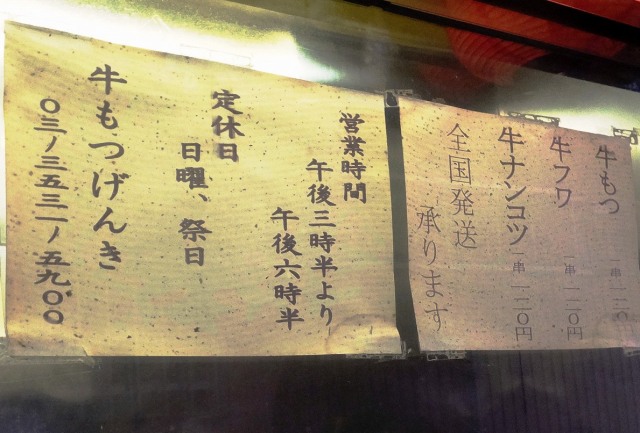 牛もつ 一串 一二〇円
牛フワ 一串 一二〇円
牛ナンコツ 一串 一二〇円
全国発送
承ります
営業時間
午後三時半より
午後六時半
定休日
日曜、祭日
牛もつげんき
〇三ノ三五三一ノ五九〇〇